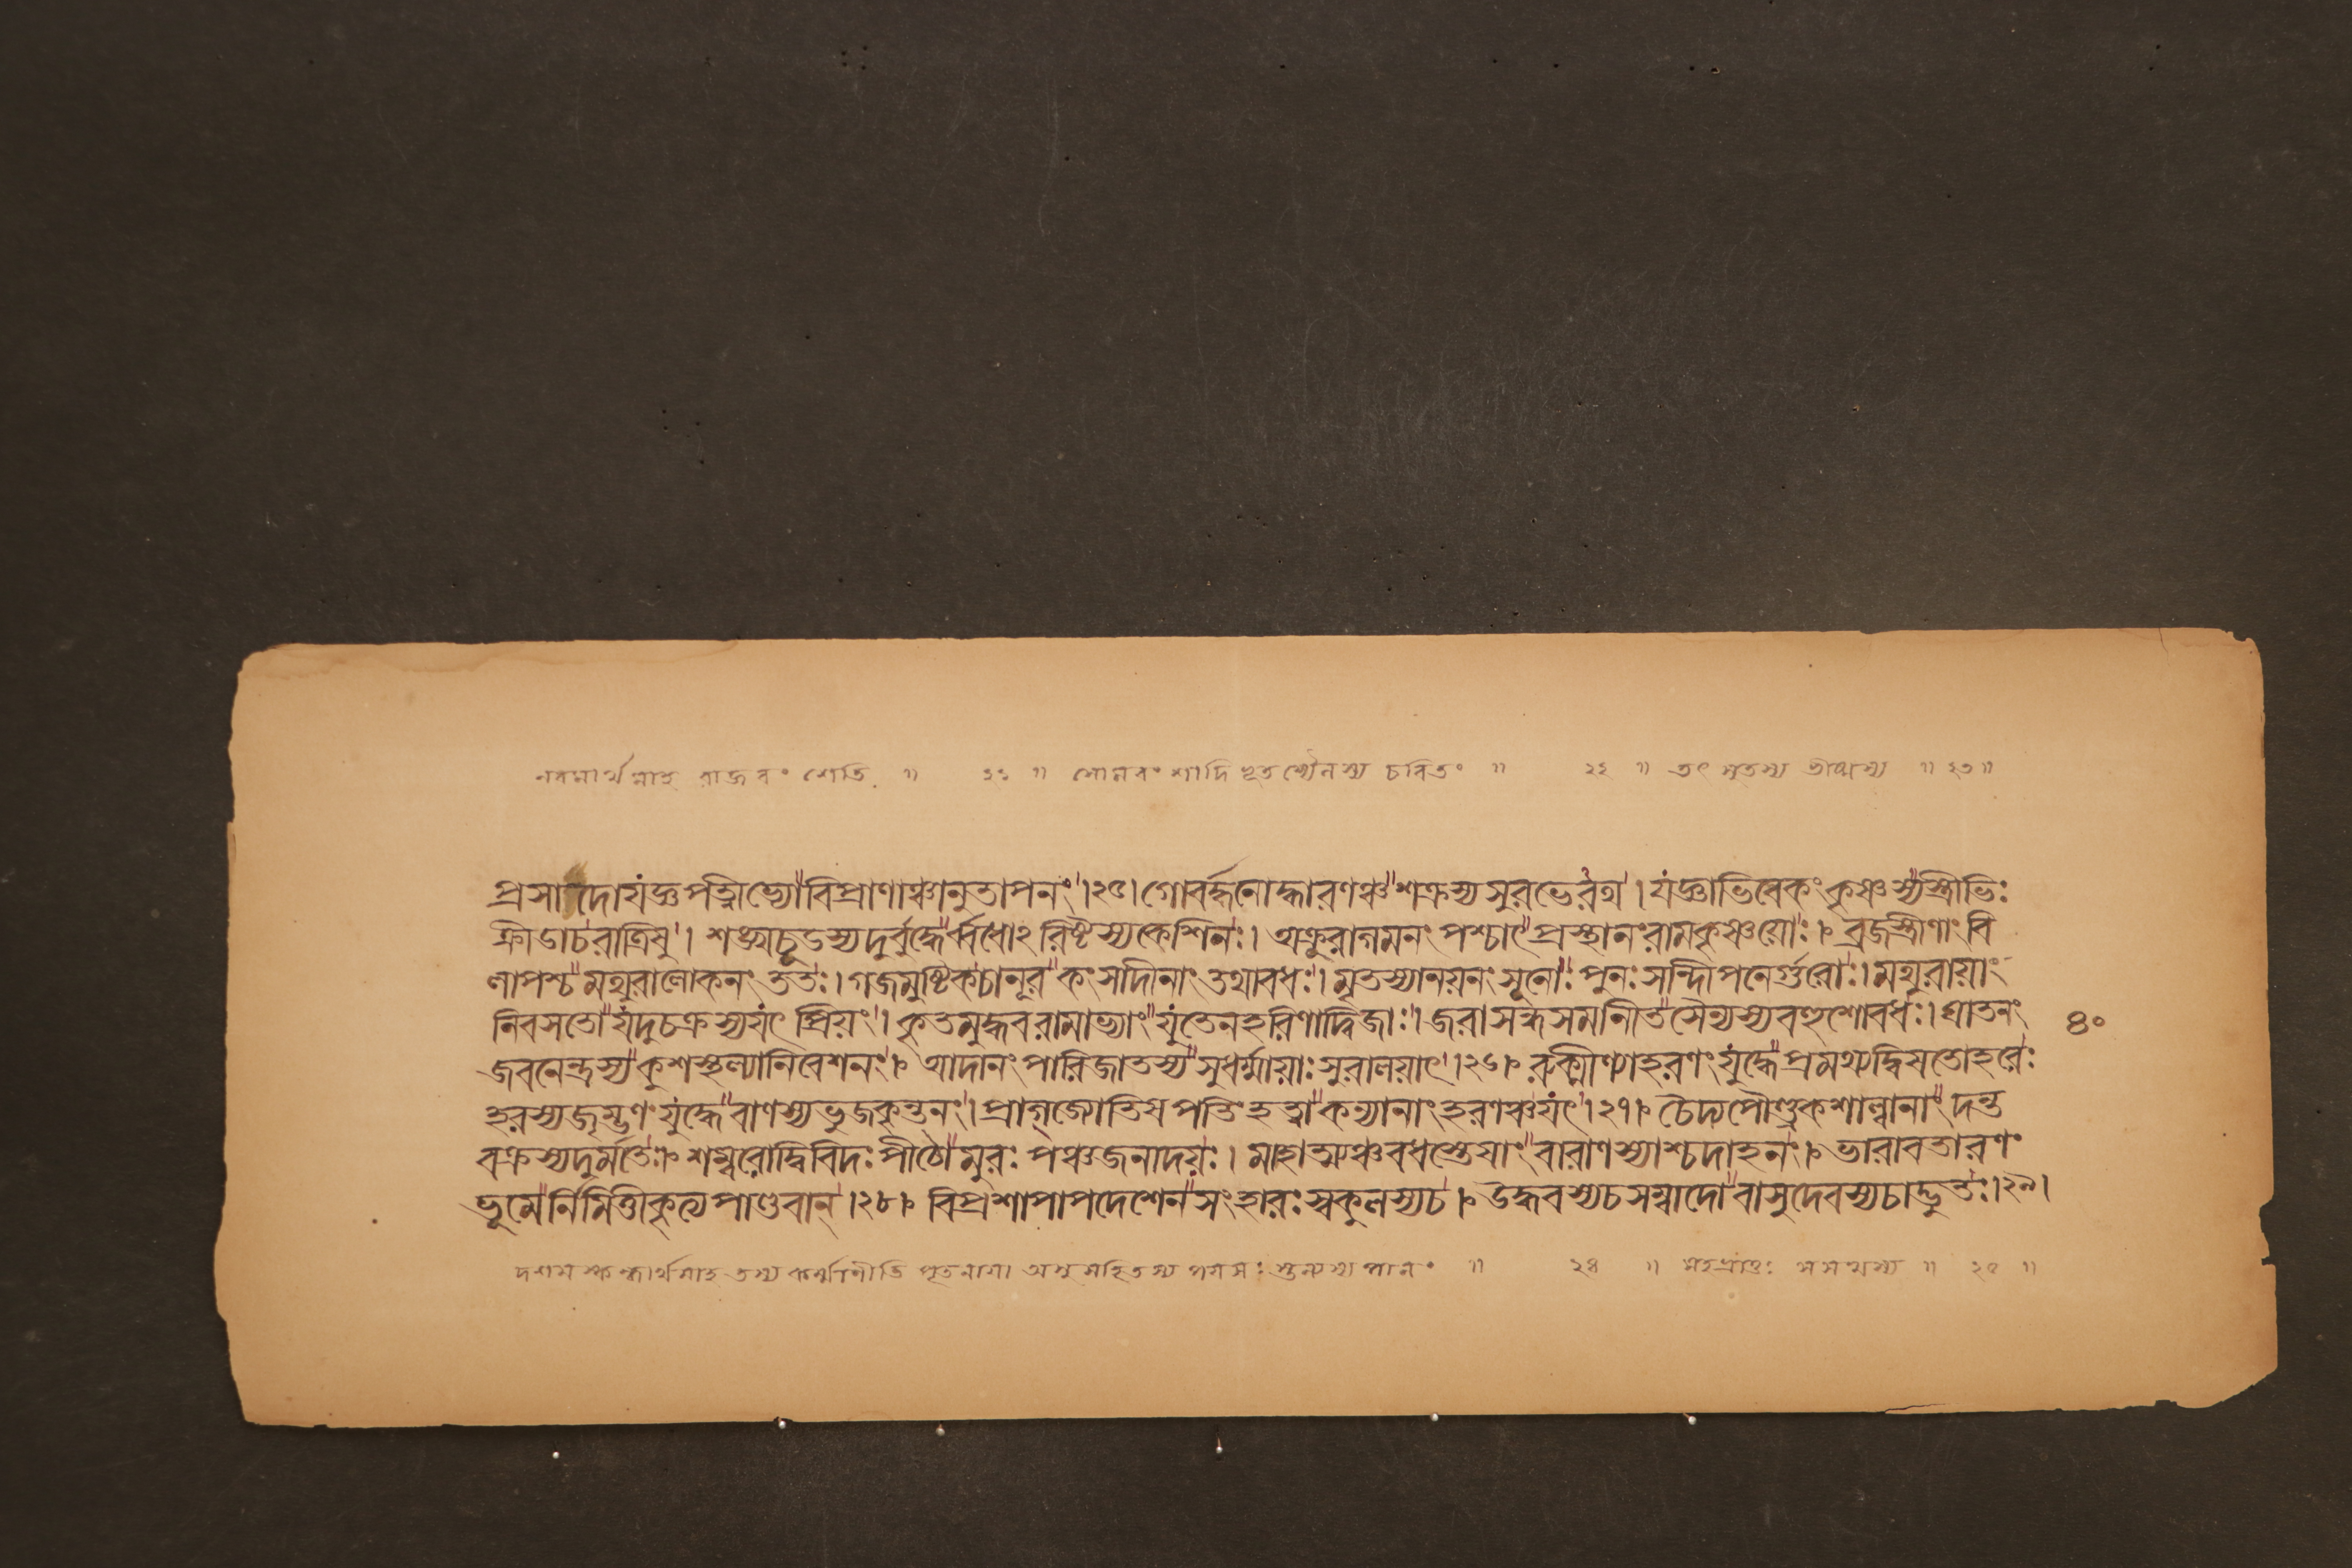 নবমার্থমাহ রাজবংশেতি ॥ ২১ ॥ সোমবংশাদিভূতস্যৈলস্য চরিতং ॥ ২২ ॥ তৎ সুতস্য ভীষ্মস্য ॥ ২৩॥
প্রসাদো যজ্ঞপত্নীভ্যো বিপ্রাণাঞ্চানুতাপনং । ২৫। গোবর্দ্ধনোদ্ধারণঞ্চ শক্রস্য সুরভেরথ । যজ্ঞাভিষেকং কৃষ্ণস্য স্ত্রীভিঃ
ক্রীডাচরাত্রিষু । শঙ্খচূডস্য দুর্বুদ্ধের্ব্বধোঽরিষ্টস্য কেশিনঃ। অক্রূরাগমনং পশ্চাৎ প্রস্থানং রামকৃষ্ণয়োঃ। ব্রজস্ত্রীণাং বি
লাপশ্চ মথুরালোকনং ততঃ। গজমুষ্টিকচানূরকংসাদীনাং তথাবধঃ। মৃতস্যানয়নং সূনোঃ পুনঃ সন্দিপনের্গুরোঃ। মথুরায়াং
নিবসতো যদুচক্রস্য যৎ প্রিয়ং । কৃতমুদ্ধবরামাভ্যাং যুতেন হরিণাদ্বিজাঃ। জরাসন্ধসমানীতসৈন্যস্য বহুশোবধঃ। ঘাতনং
জবনেন্দ্রস্য কুশস্থল্যানিবেশনং । আদানং পারিজাতস্য সুধর্ম্মায়াঃ সুরালয়াৎ । ২৬। রুক্মিণ্যাহরণং যুদ্ধে প্রমথ্য দ্বিষতোহরেঃ
হরস্য জৃম্ভণং যুদ্ধে বাণস্য ভুজকৃন্তনং । প্রাগ্জ্যোতিষপতিং হত্বা কন্যানাং হরণঞ্চ যৎ । ২৭। চৈদ্যপৌণ্ড্রকশাল্বানাং দন্ত
বক্রস্য দুর্ম্মতেঃ। শম্বরোদ্বিবিদঃ পীঠো মুরঃ পঞ্চজনাদয়ঃ। মাহাত্ম্যঞ্চ বধস্তেষাং বারাণস্যাশ্চ দাহনং । ভারাবতারণং
ভূমের্নিমিত্তীকৃত্য পাণ্ডবান্ । ২৮। বিপ্রশাপাপদেশেন সংহারঃ স্বকুলস্য চ । উদ্ধবস্য চ সম্বাদো বাসুদেবস্য চাদ্ভুতঃ। ২৯।
৪০
দশমস্কন্ধার্থমাহ তস্য কর্ম্মাণীতি পূতনায়া অসুসহিতস্য পয়সঃ স্তন্যস্য পানং ॥ ২৪ ॥ ২৫ ॥